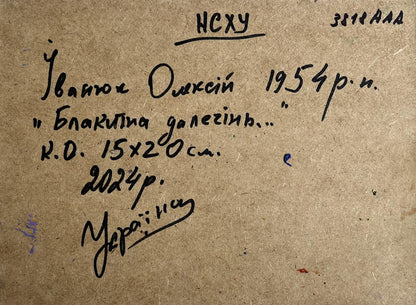 НСХУ
3818ААА
Іванюк Олексій 1954р.н.
"Блакитна далечінь..."
к.о. 15х20см.
2024р.
Україна